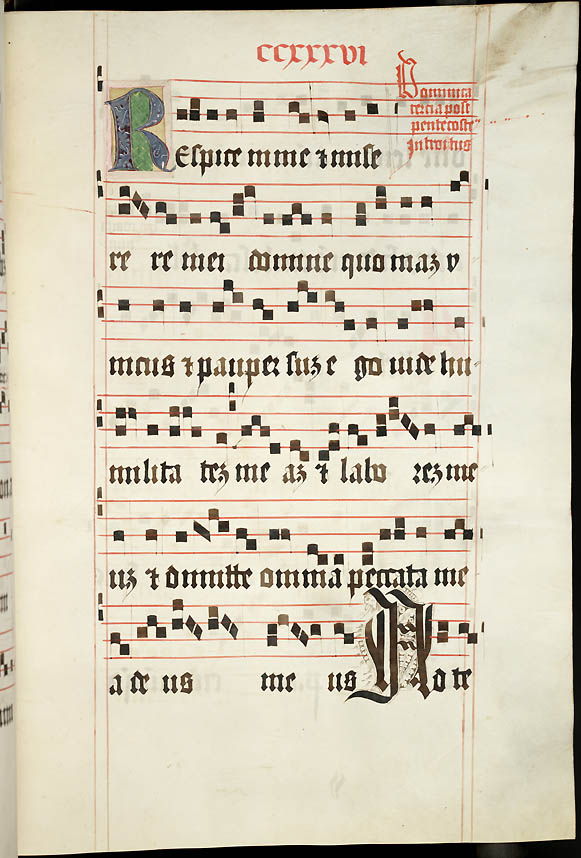 CCXXXVI
Dominica
tercia post
pentecosteⁿ
Introitus
REspice in me ⁊ mise
re re mei domine quo maꝫ v
nicus ⁊ pauper suꝫ e go vide hu-
milita teꝫ me aꝫ ⁊ labo reꝫ me
uꝫ ⁊ dimitte omnia peccata me
a de us me us Ad te